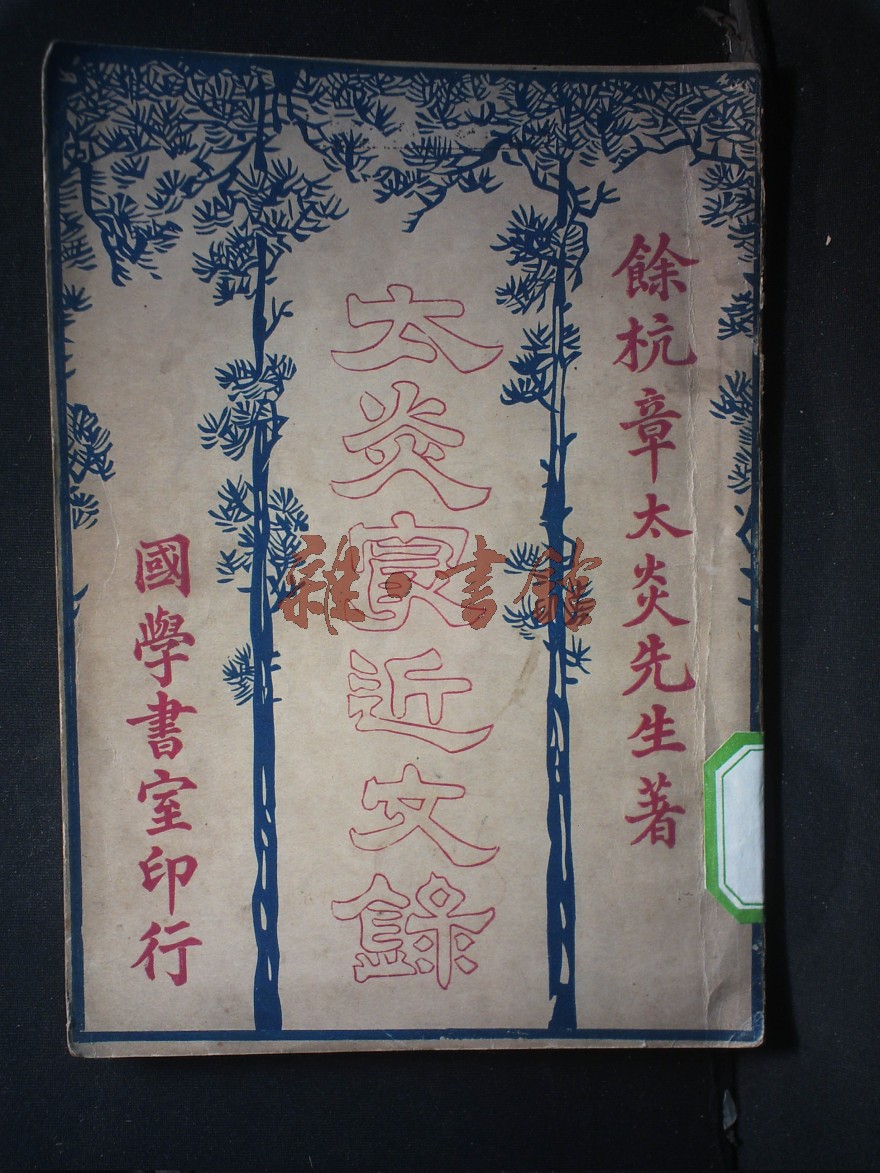 餘杭章太炎先生著
太炎最近文錄
國學書室印行
雜·書館